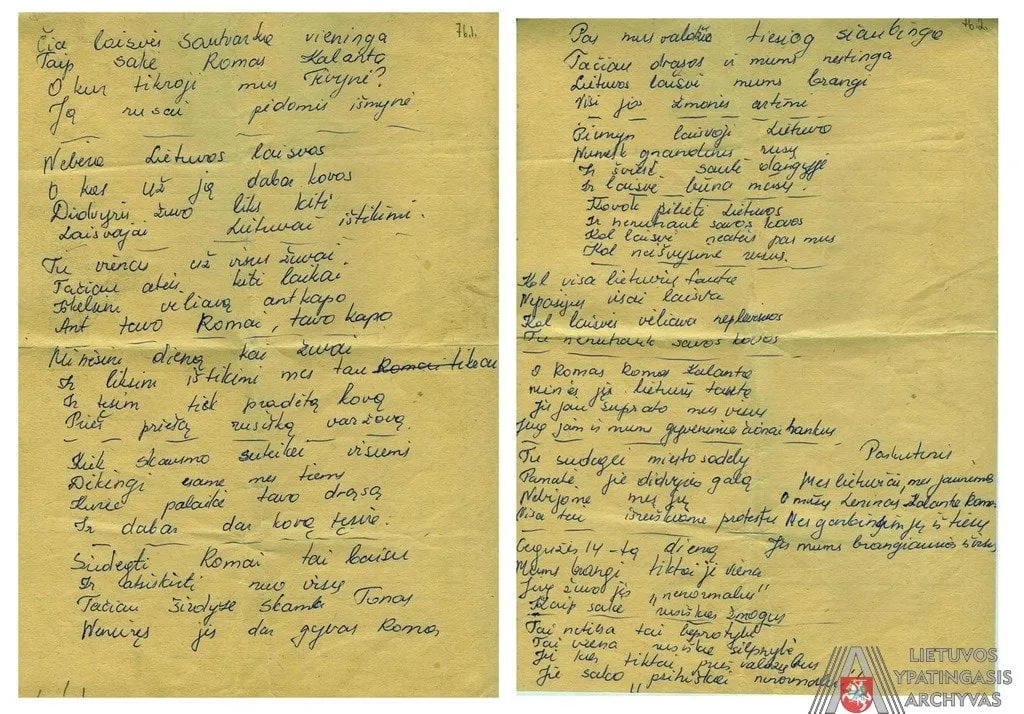 76.1.
Čia laisvės santvarka vieninga
Taip sakė Romas Kalanta
O kur tikroji mus Tėvynė?
Ją rusai pėdomis išmynė
Nebėra Lietuvos laisvos
O kas už ją dabar kovos
Didvyris žuvo liks kiti
Laisvajai Lietuvai ištikimi.
Tu vienas už visus žuvai.
Tačiau ateis kiti laikai
Iškelsim vėliavą ant kapo
Ant tavo Romai, tavo kapo
Minėsim dieną kai žuvai
Ir liksim ištikimi mes tau Romai tikrai
Ir tęsim tiek pradėtą kovą
Prieš priešą rusišką varžovą.
Kiek skausmo suteikei visiems
Dėkingi esame mes tiems
Kurie palaikė tavo drąsą
Ir dabar dar kovą tęsia.
Sudegti Romai tai baisu
Ir atsiskirti nuo visų
Tačiau širdyse skamba Tonas
Nenumręs jis dar gyvas Romas
76.2.
Pas mus valdžia tiesiog siaubinga
Tačiau drąsos ir mums nestinga
Lietuvos laisvė mums brangi
Visi jos žmonės artimi
Pirmyn laisvoji Lietuva
Numesk grandinis rusų
Ir šviesk saulė danguje
Ir laisvė būna mūsų.
Kovok pilieti Lietuvos
Ir nenutrauk savos kovos
Kol laisvė neateis pas mus
Kol neišvysime rusus.
Kol visa lietuvių tauta
Nepasijus visai laisva
Kol laisvės vėliava neplevėsuos
Tu nenutrauk savos kovos
O Romas Romas Kalanta
minės jį lietuvių tauta
Jis jau suprato mus visus
Jug jam ir mums gyvenimas čionai bankus
Tu sudegei miesto sodely
Pamatė jie didvyrio galą
Nebijome mes jų
Visa tai išreiškiame protestu
Gegužės 14-tą dieną
Mums brangi tiktai ji viena
Jug žuvo jis „nenormalus"
Kaip sakė rusiškas žmogus
Tai netiesa tai beprotybė
Tai viena rusiška silpnybė
Jei kas tiktai prieš valdžią bus
Jie sako psihiškai nenormalus
Paskutinis
Mes lietuviai, mes jaunimas
O mūsų Leninas Kalanta Romas
Mes garbingim jį iš tiesų
Jis mums brangiausias iš visų
LIETUVOS
YPATINGASIS
ARCHYVAS